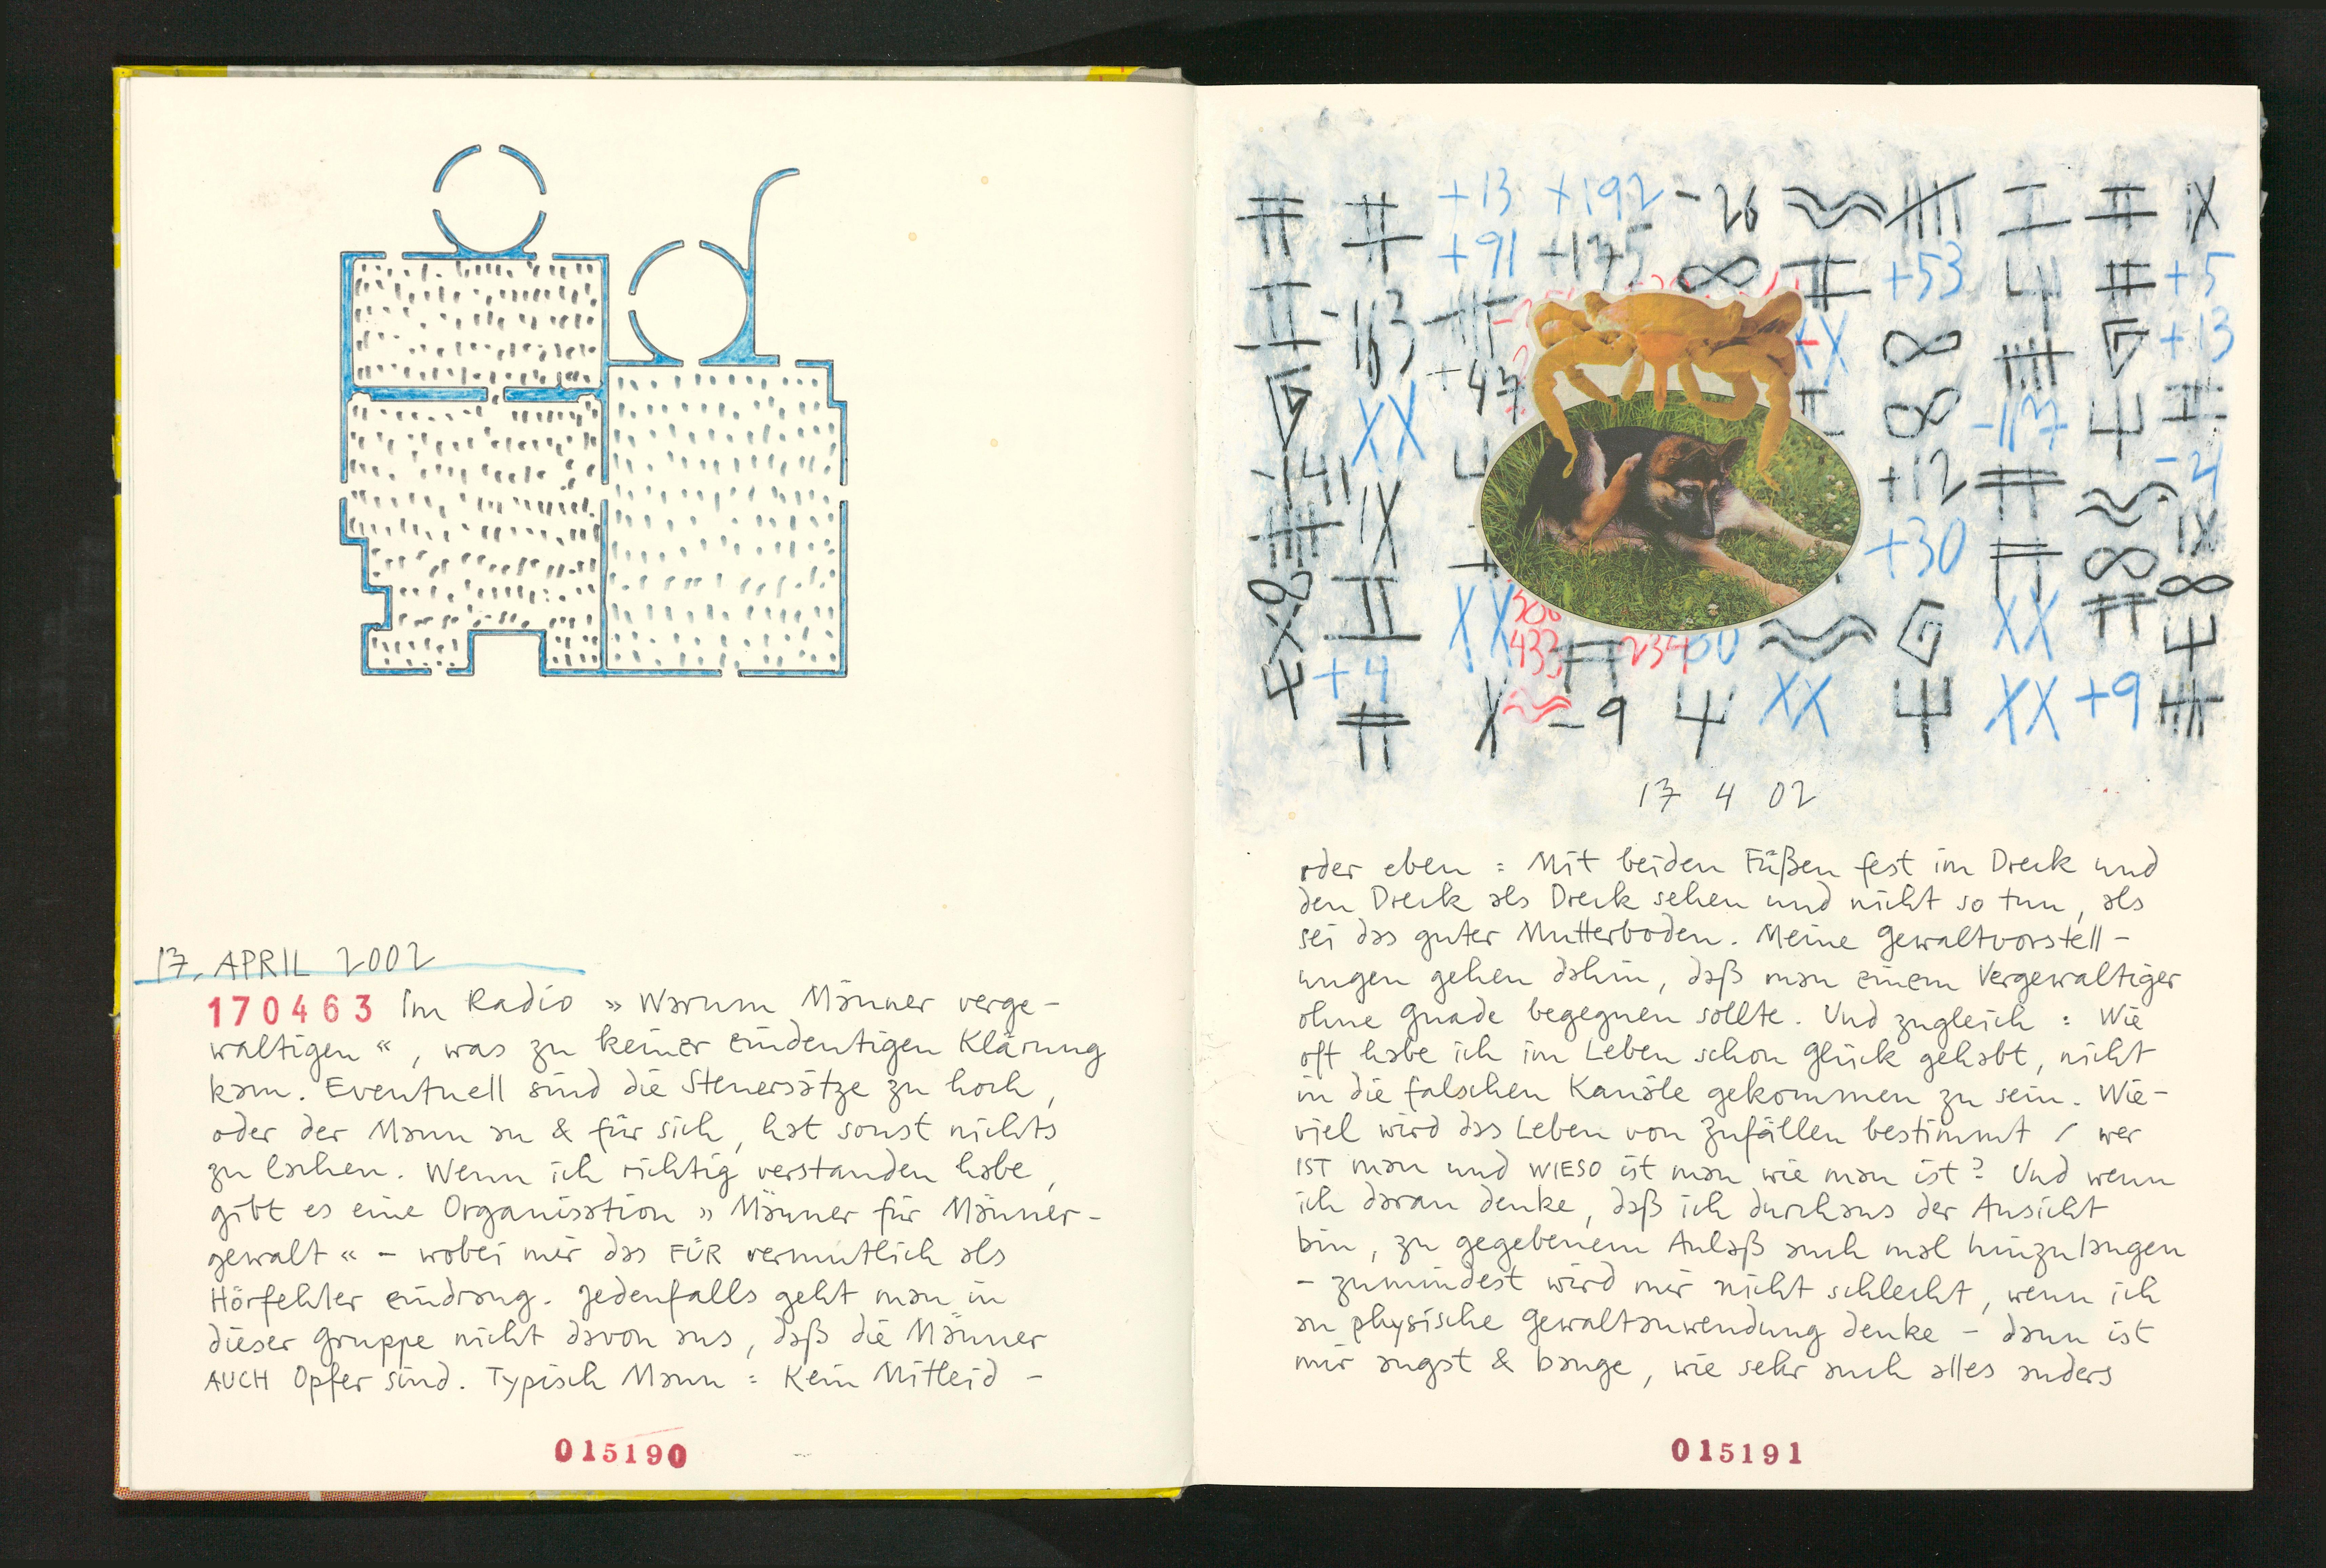 17. APRIL 2002
170463 Im Radio »Warum Männer verge-
waltigen«, was zu keiner eindeutigen Klärung
kam. Eventuell sind die Steuersätze zu hoch,
oder der Mann an & für sich, hat sonst nichts
zu lachen. Wenn ich richtig verstanden habe,
gibt es eine Organisation »Männer für Männer-
gewalt« – wobei mir das FÜR vermutlich als
Hörfehler eindrang. Jedenfalls geht man in
dieser Gruppe nicht davon aus, daß die Männer
AUCH Opfer sind. Typisch Mann: Kein Mitleid –
015190
+13 +192 -26
+91 +175 ∞ +53 +5
-163 ∞ +13
+47 XX
XX ∞ -117
-141 +12 -21
IX +30 IX
∞ XX ∞ ∞
433 234 XX
+4 XX XX +9
-9
17 4 02
oder eben: Mit beiden Füßen fest im Dreck und
den Dreck als Dreck sehen und nicht so tun, als
sei das guter Mutterboden. Meine Gewaltvorstell-
ungen gehen dahin, daß man einem Vergewaltiger
ohne Gnade begegnen sollte. Und zugleich: Wie
oft habe ich im Leben schon Glück gehabt, nicht
in die falschen Kanäle gekommen zu sein. Wie-
viel wird das Leben von Zufällen bestimmt / wer
IST man und WIESO ist man wie man ist? Und wenn
ich daran denke, daß ich durchaus der Ansicht
bin, zu gegebenem Anlaß auch mal hinzulangen
– zumindest wird mir nicht schlecht, wenn ich
an physische Gewaltanwendung denke – dann ist
mir angst & bange, wie sehr auch alles anders
015191